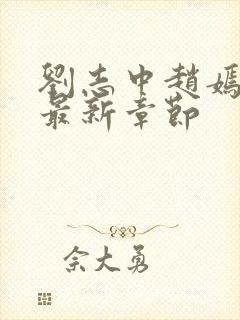 劉志中趙嫣
最新章節
佘大勇